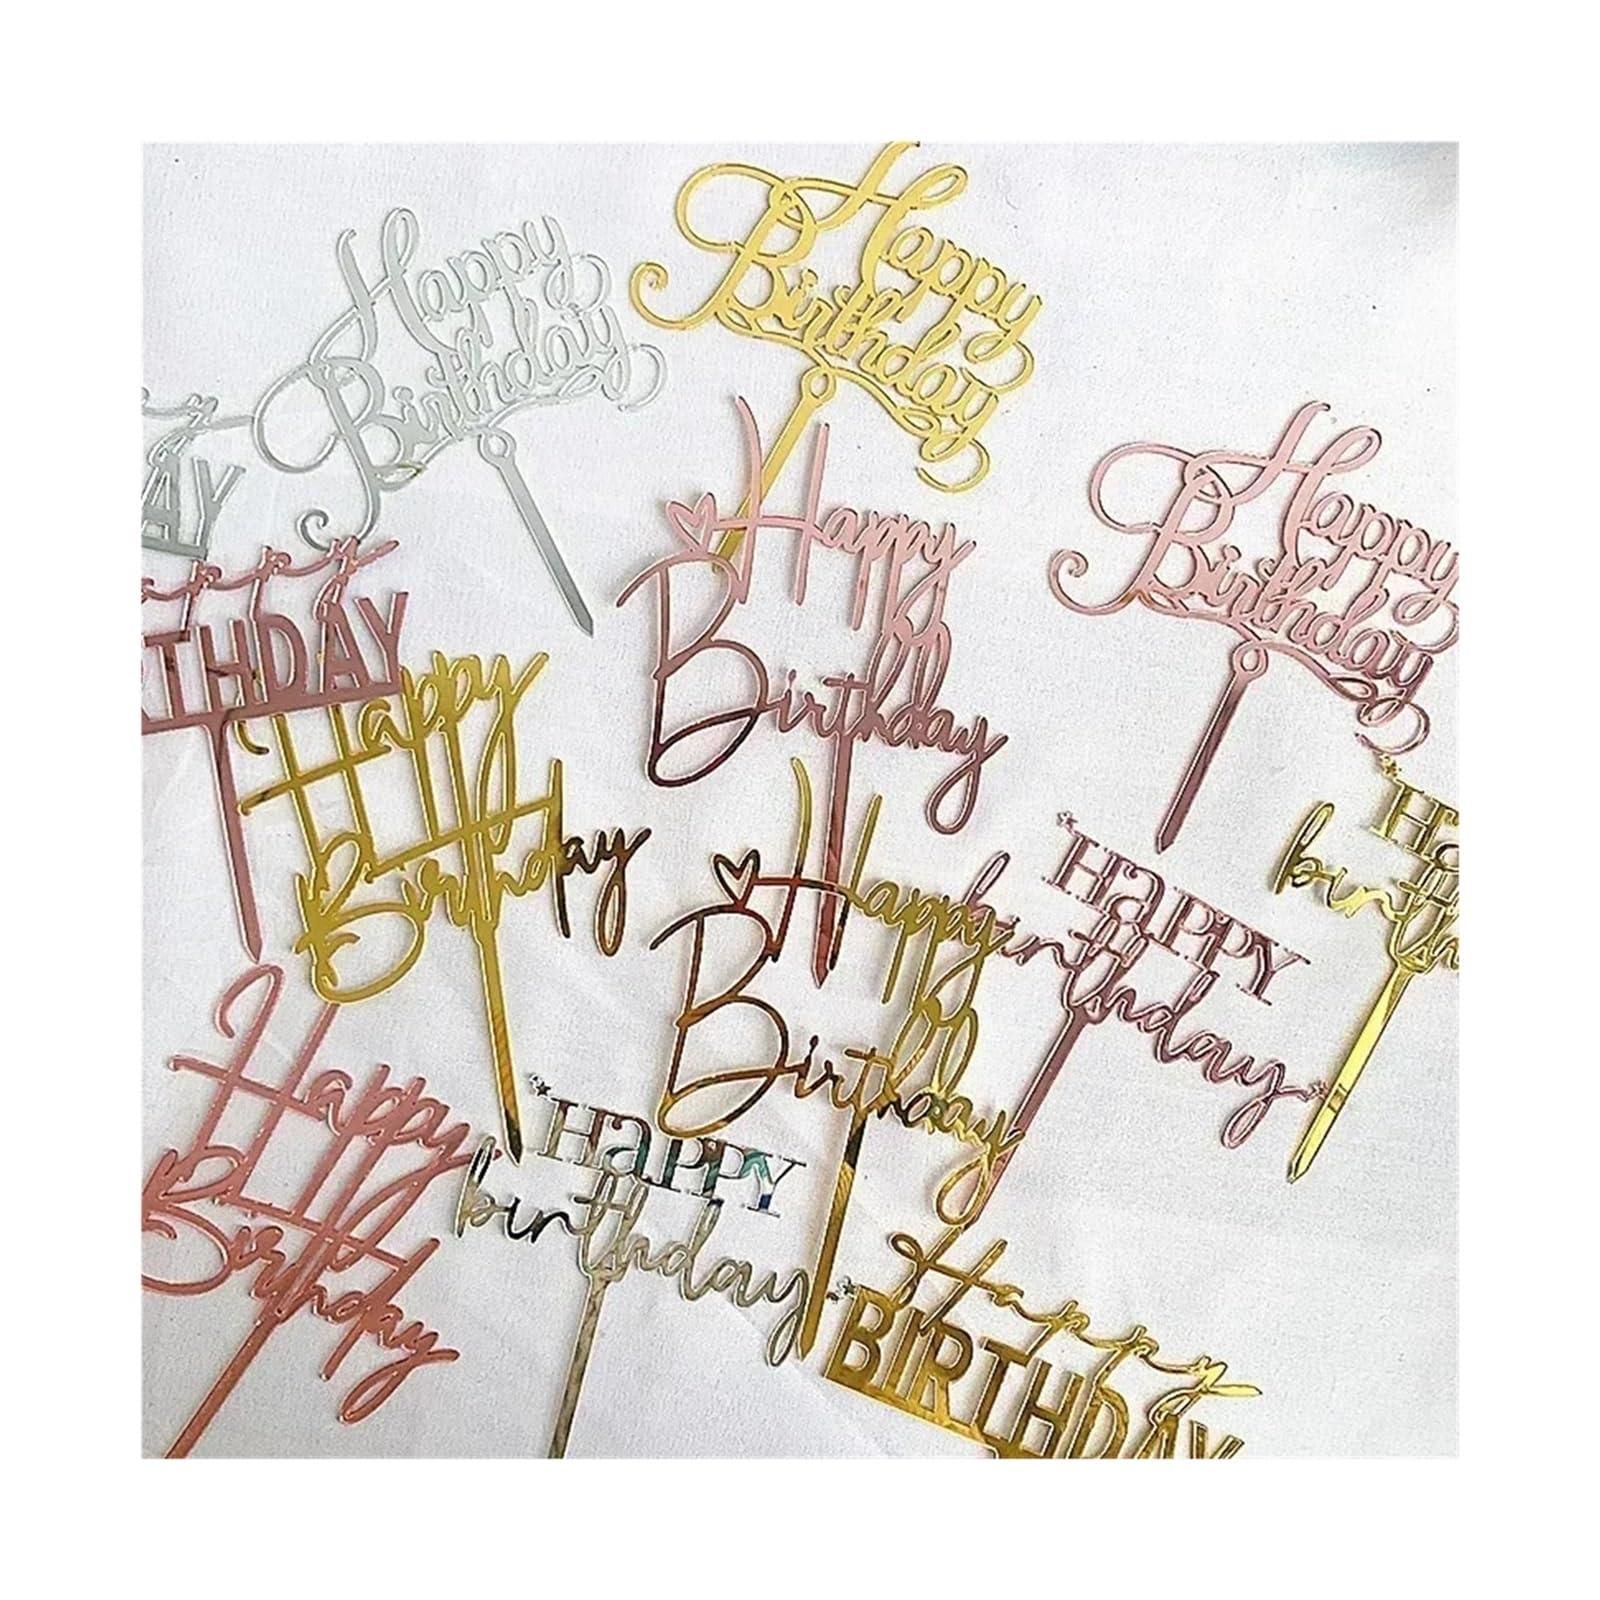 Happy
Birthday
Happy
Birthday
AY
Happy
Birthday
Happy
Birthday
THDAY
Happy
Birthday
Happy
birthday
Happy
Birthday
Happy
Birthday
Happy
birthday
Happy
BIRTHDAY